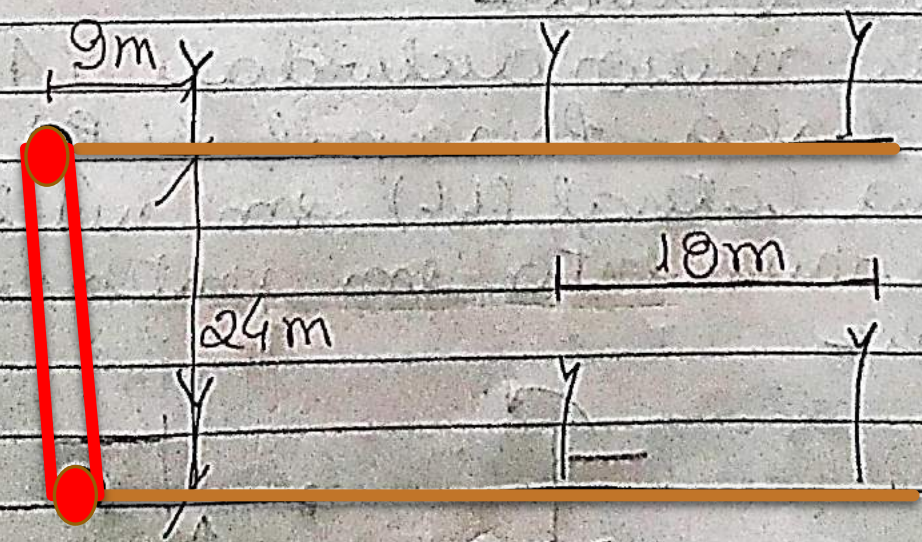 9m
18m
24m